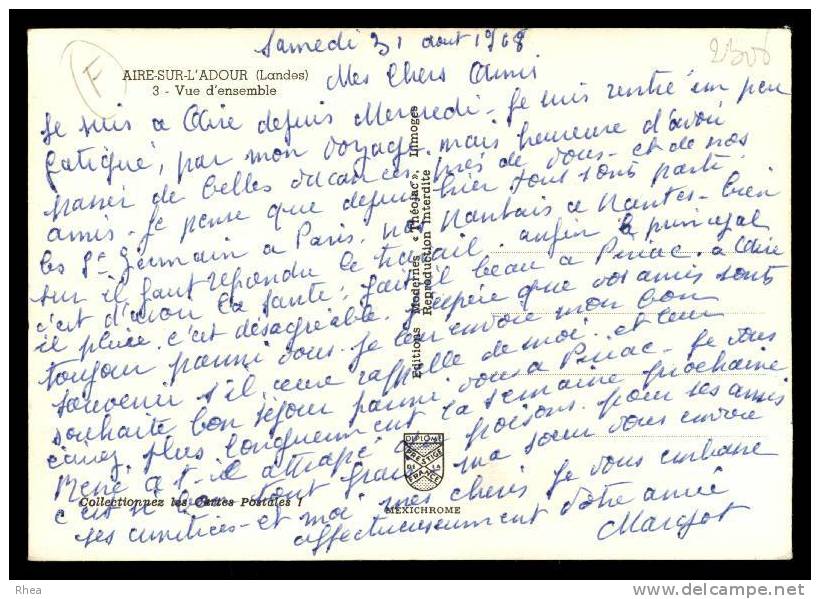 Samedi 31 aout 1968
2506
F
AIRE-SUR-L'ADOUR (Landes)
3 - Vue d'ensemble
Mes Chers Amis
Je suis a Aire depuis Mercredi. Je suis rentré un peu
fatiguée, par mon voyage, mais heureuse d'avoir
passer de belles vacances près de vous et de nos
amis. Je pense que depuis hier tous sont parti
les St Germain a Paris, nos Nantais a Nantes. bien
sur il faut reprendre le travail. enfin le principal
c'est d'avoir la santé, fait-il beau a Piriac. a Aire
il pleut. c'est désagréable. J'espère que vos amis sont
toujour parmi vous. Je leur envoie mon bon
souvenir s'il ceux rappelle de moi. et leur
souhaite bon séjour parmi vous a Piriac. Je vous
plus longuement la semaine prochaine
René a t-il attrapé poisons. pour ses amis
c'est ma sœur vous envoie
ses amitiés et moi mes chéris Je vous embrasse
affectueusement Votre amie
Margot
Editions Modernes « Théojac », Limoges
Reproduction Interdite
DIPLOME
PRESTIGE
DE LA
FRANCE
Collectionnez les Cartes Postales !
MEXICHROME
Rhea
www.delcampe.net